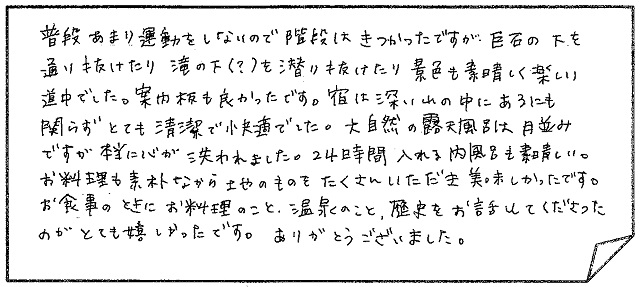 普段あまり運動をしないので階段はきつかったですが巨石の下を
通り抜けたり滝の下(?)を潜り抜けたり景色も素晴しく楽しい
道中でした。案内板も良かったです。宿は深い山の中にあるにも
関らずとても清潔で快適でした。大自然の露天風呂は月並み
ですが本当に心が洗われました。24時間入れる内風呂も素晴しい。
お料理も素朴ながら土地のものをたくさんいただき美味しかったです。
お食事のときにお料理のこと、温泉のこと、歴史をお話ししてくださった
のがとても嬉しかったです。ありがとうございました。